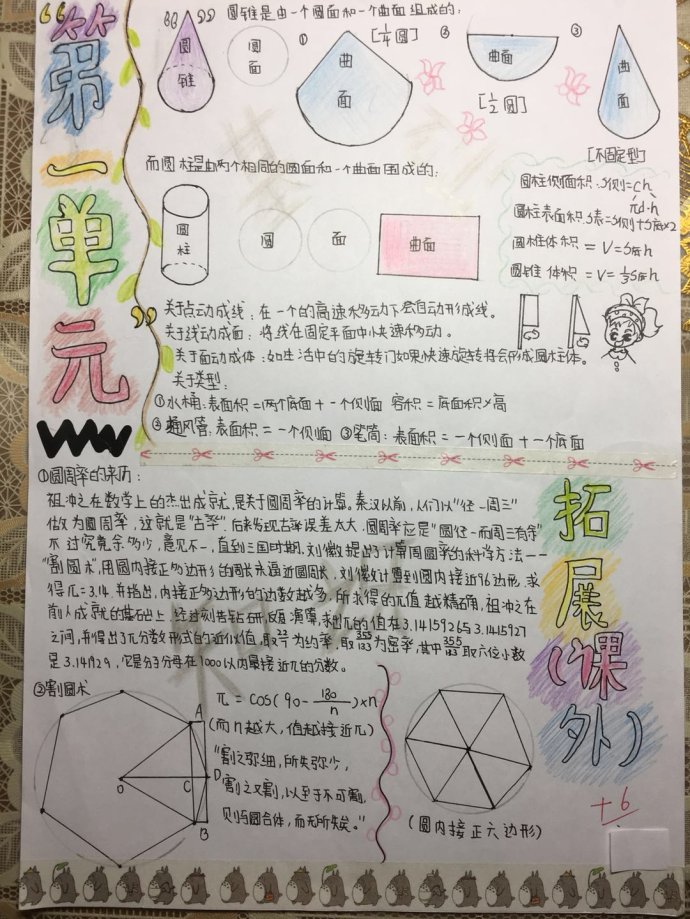 第一单元
圆锥是由一个圆面和一个曲面组成的:
圆
锥
圆
面
①
曲
面
[1/4圆]
②
曲面
[1/2圆]
③
曲
面
[不固定型]
而圆柱是由两个相同的圆面和一个曲面围成的:
圆
柱
圆
面
曲面
圆柱侧面积:S侧=ch
πd·h
圆柱表面积:S表=S侧+S底×2
圆柱体积 = V=S底h
圆锥体积 = V=1/3S底h
关于点动成线:在一个的高速移动下会自动形成线。
关于线动成面:将线在固定平面中快速移动。
关于面动成体:如生活中的旋转门如果快速旋转将会形成圆柱体。
关于类型:
①水桶:表面积=两个底面+一个侧面 容积=底面积×高
②通风管:表面积=一个侧面 ③笔筒:表面积=一个侧面+一个底面
拓展(课外)
①圆周率的来历:
祖冲之在数学上的杰出成就,是关于圆周率的计算。秦汉以前,人们以"径一周三"
做为圆周率,这就是"古率".后来发现古率误差太大,圆周率应是"圆径一而周三有余"
不过究竟余多少,意见不一,直到三国时期,刘徽提出了计算周圆率的科学方法——
"割圆术",用圆内接正多边形的周长来逼近圆周长,刘徽计算到圆内接近96边形,求
得π=3.14,并指出,内接正多边形的边数越多,所求得的π值越精确,祖冲之在
前人成就的基础上,经过刻苦钻研,反复演算,求出π的值在3.1415926与3.1415927
之间,并得出了π分数形式的近似值,取22/7为约率,取355/133为密率,其中355/133取六位小数
是3.141929,它是分子分母在1000以内最接近π的分数。
②割圆术
A
O
C
D
B
π=cos(90-180/n)×n
(而n越大,值越接近π)
"割之弥细,所失弥少,
割之又割,以至于不可割,
则与圆合体,而无所失矣。"
(圆内接正六边形)
+6